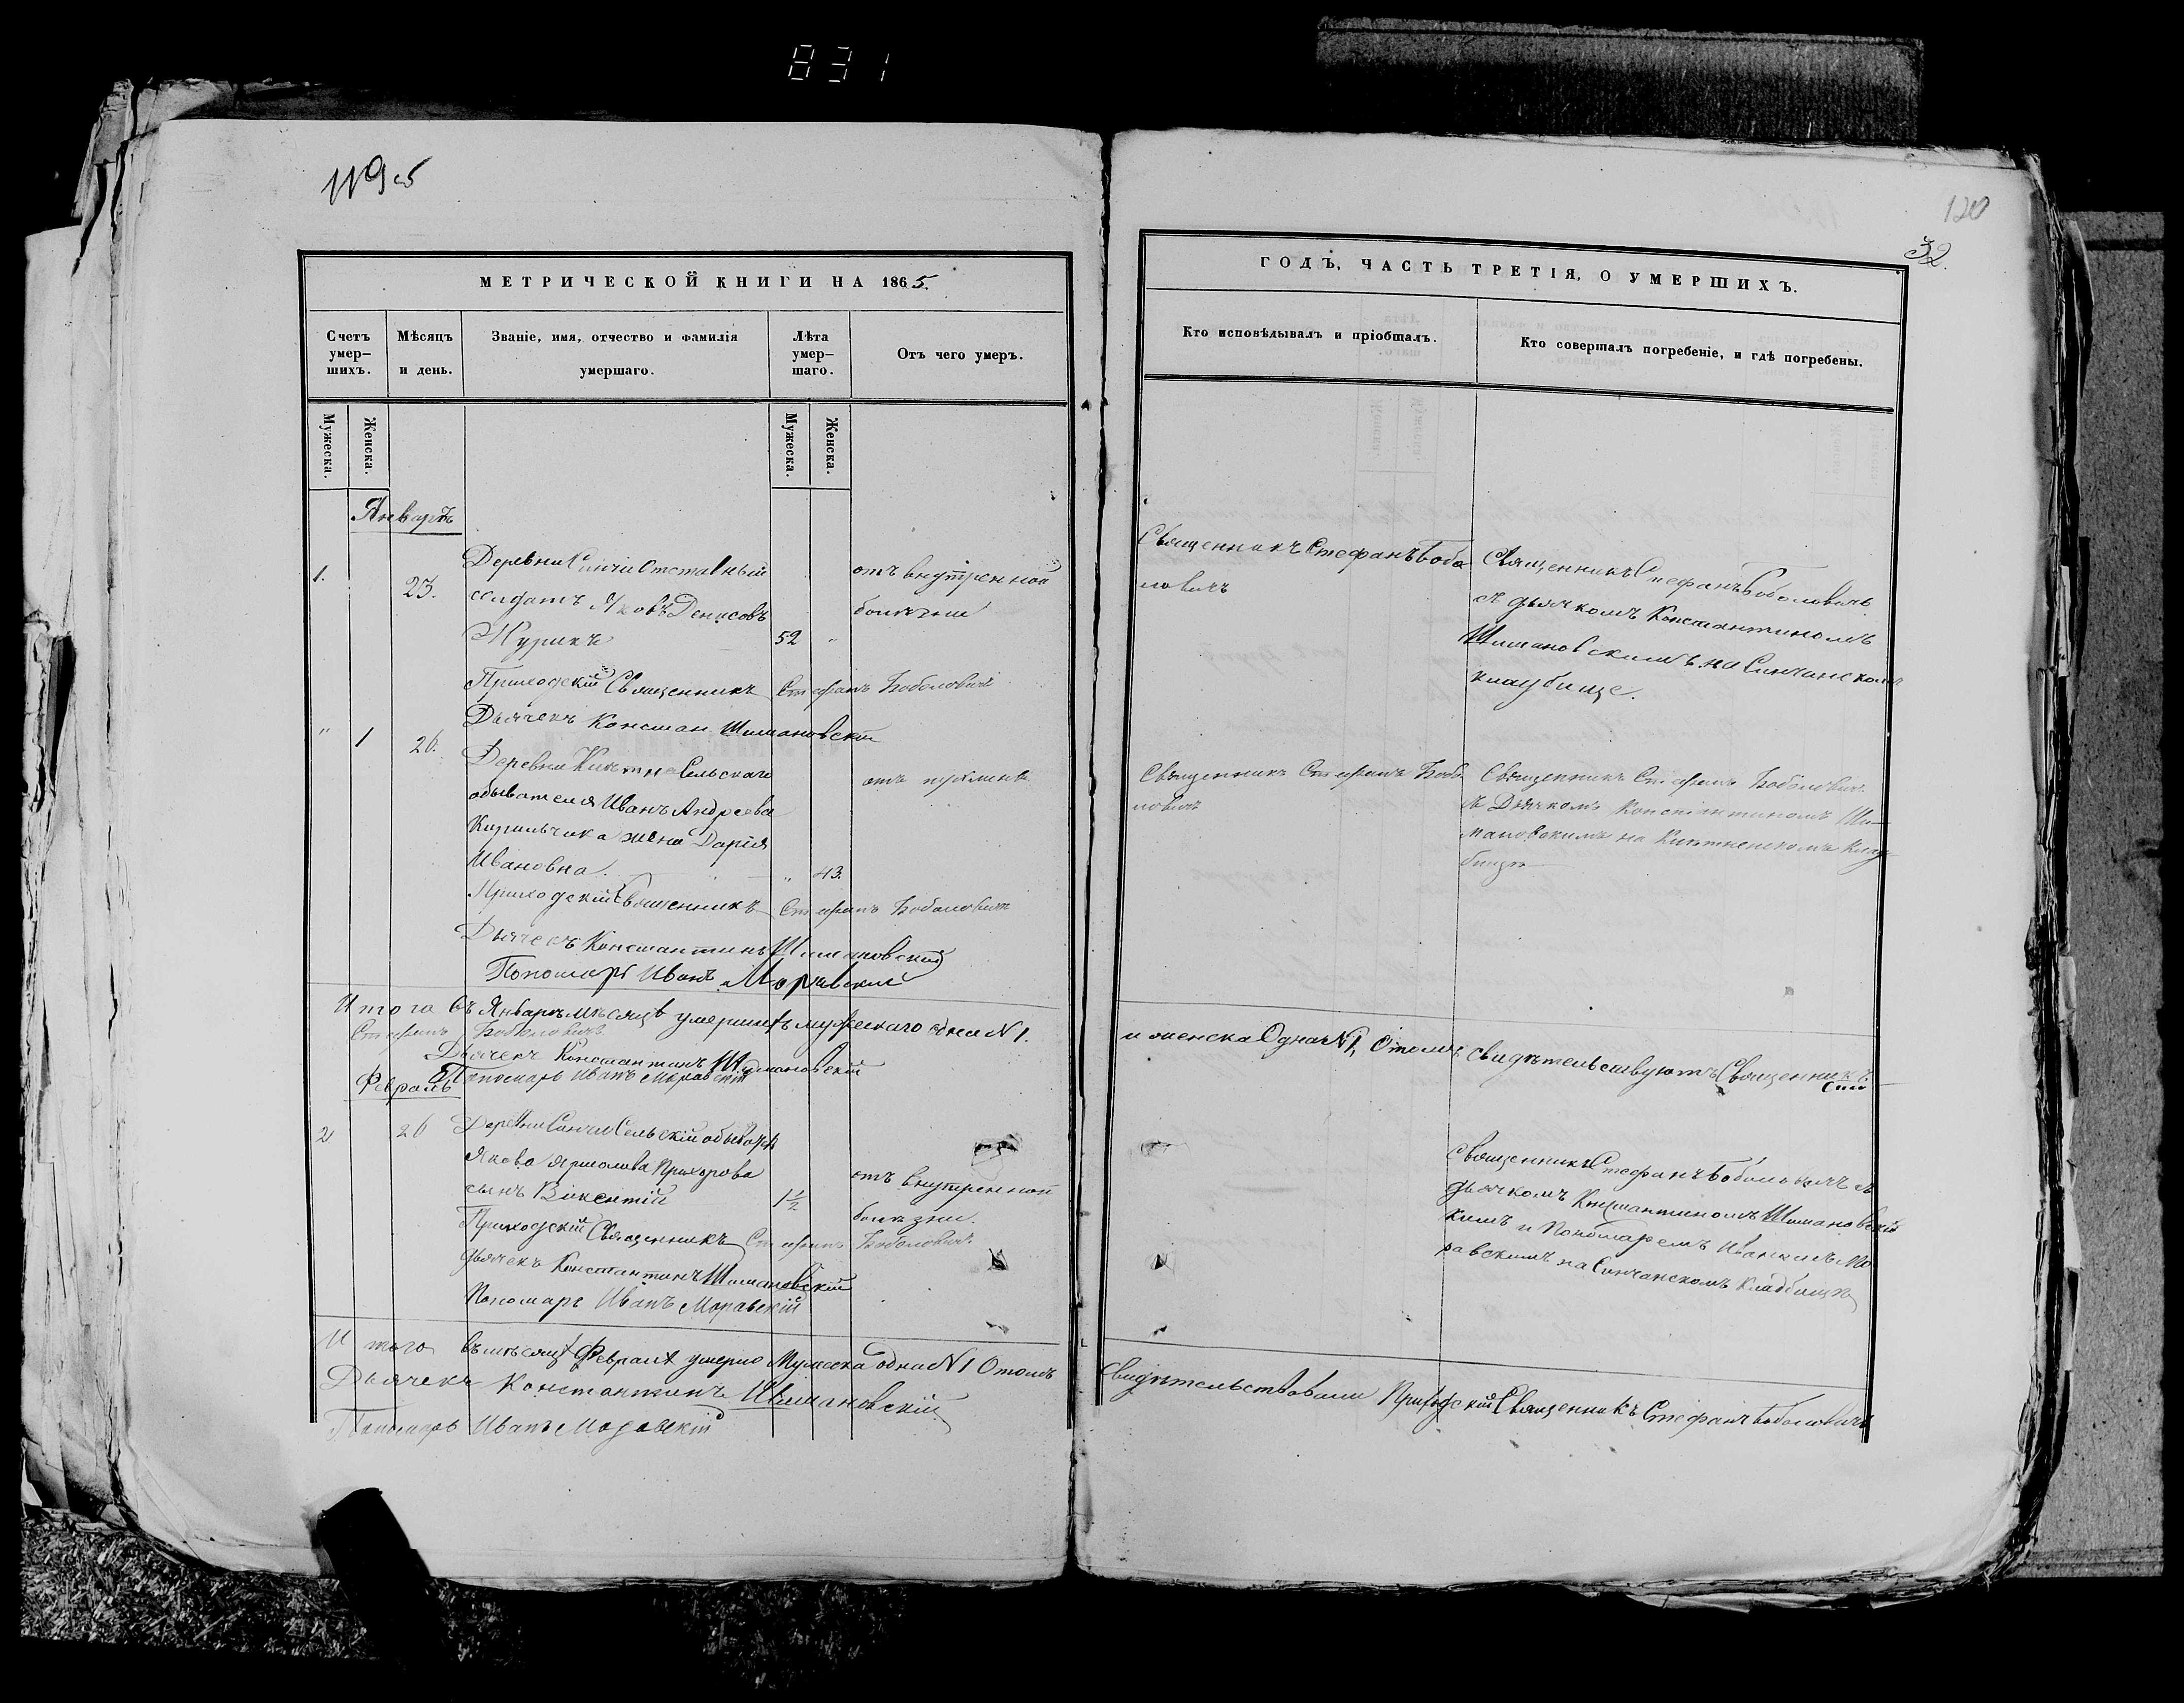 831
119 об
МЕТРИЧЕСКОЙ КНИГИ НА 1865.
Счетъ умер-
шихъ.
Мѣсяцъ
и день.
Званіе, имя, отчество и фамилія
умершаго.
Лѣта
умер-
шаго.
Отъ чего умеръ.
Мужеска.
Женска.
Мужеска.
Женска.
Январь
1.
23.
Деревни Синчи Отставный
солдатъ Яковъ Денисовъ
Журикъ
52
отъ внутренной
болѣзни
Приходскій Священникъ Стефанъ Боболовичь
Дьячекъ Констан Шимановскій
" 1 26.
Деревни Сельскаго
обывателя Иванъ Андреева
Кирильчика жена Дарія
Ивановна.
" 43.
отъ
Приходскій Священникъ Стефанъ Боболовичь
Дьячекъ Константинъ Шимановскій
Пономарь Иванъ Моравскій
Итого въ Январѣ мѣсяцѣ умершихъ мужескаго одна N 1.
Стефанъ Боболовичъ
Дьячекъ Константинъ Шимановскій
Пономарь Иванъ Моравскій
Февраль
2
26
Деревни Синчи Сельскій
Якова Ярмолива Прихорова
сынъ Викентій
1 1/2
отъ внутренной
болѣзни.
Приходскій Священникъ Стефанъ Боболовичь
дьячекъ Константинъ Шимановскій
Пономарь Иванъ Моравскій
Итого въ мѣсяцѣ Февралѣ умерло Мужеска одна N 1 Отомъ
Дьячекъ Константинъ Шимановскій
Пономарь Иванъ Моравскій
120
32.
ГОДЪ, ЧАСТЬ ТРЕТІЯ, О УМЕРШИХЪ.
Кто исповѣдывалъ и пріобщалъ.
Кто совершалъ погребеніе, и гдѣ погребены.
Священникъ Стефанъ Бобо
ловичъ
Священникъ Стефанъ Боболовичь
съ дьячкомъ Константиномъ
Шимановскимъ на Синчанскомъ
кладбище.
Священникъ Стефанъ Бобо
ловичъ
Священникъ Стефанъ Боболовичъ
съ Дьячкомъ Константиномъ Ши-
мановскимъ на Клад-
бищѣ
и женска Одна N 1, Отомъ свидѣтельствуютъ Священникъ
Сте
Священникъ Стефанъ Боболовичъ съ
дьячкомъ Константиномъ Шимановскій
кимъ и Пономаремъ Иваномъ Мо
равскимъ на Синчанскомъ Кладбищѣ
свидѣтельствовали Приходскій Священникъ Стефанъ Боболовичъ